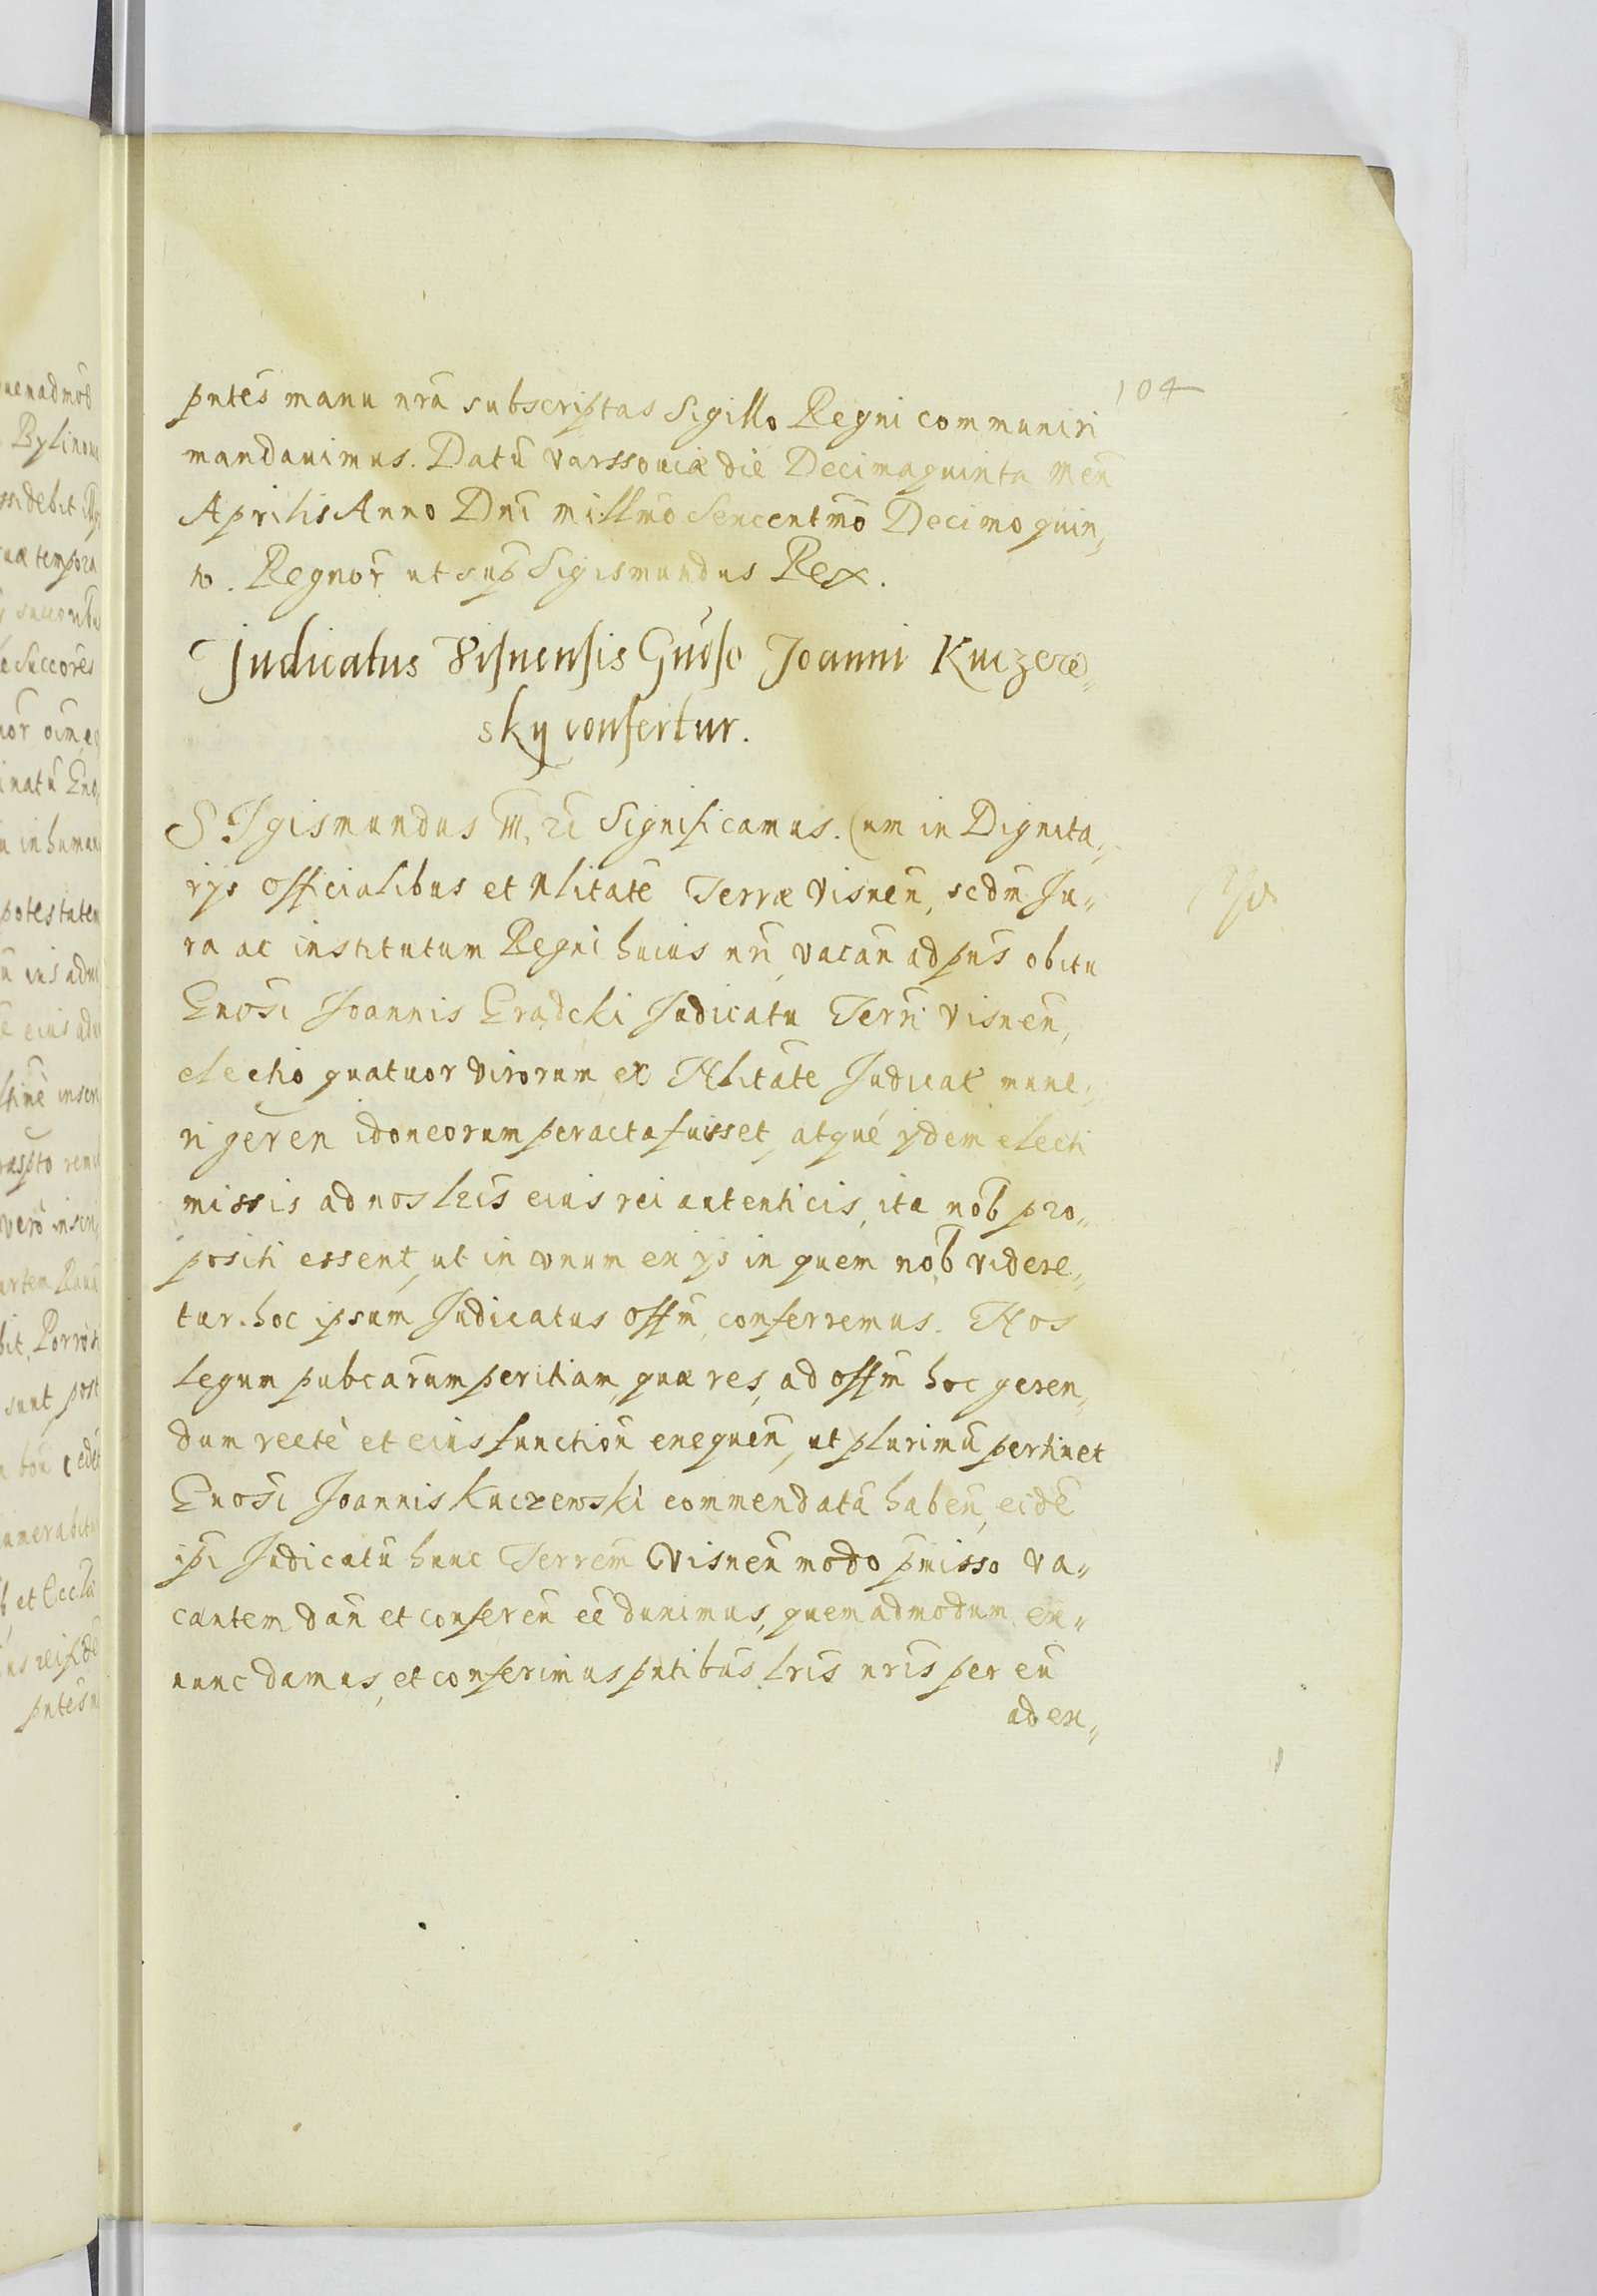 104
pntēs manu nrā subscriptas Sigillo Regni communiri
mandauimus. Datū varssouiæ die Decimaquinta Men̄
Aprilis Anno Dnī millmō Sexcentmō Decimo quin„
to. Regnor̄ ut sup̄ Sigismundus Rex.
Judicatus Visnensis Gnōso Joanni Kuczew„
sky confertur.
SIgismundus III, Significamus. Cum in Dignita„
rys officialibus et Nlitatē Terræ Visnen̄, scdm̄ Ju„
ra ac institutum Regni huius nrī, vacan̄ ad pn̄s obitu
Gnōsi Joannis Grądcki Judicatu Terrī Visnen̄,
electio quatuor virorum ex Nlitātē Judicat mune„
ri geren idoneorum peracta fuisset, atquē ydem electi
missis ad nos lrīs eius rei autenticis, ita nob̄ pro„
positi essent, ut in vnum ex ys in quem nob̄ videre„
tur. hoc ipsum Judicatus offm̄ conferremus. Nos
legum pubcārum peritiam, quæ res, ad offm̄ hoc geren„
dum rectè et eius function̄ exequen̄, ut plurimū pertinet
Gnōsi Joannis Kuczewski commendatā haben̄, eidē
ipī Judicatū hunc Terrem̄ Visnen̄ modo pmīsso va„
cantem dan̄ et conferen̄ eē duximus, quemadmodum ex„
nunc damus, et conferimus pntibūs lrīs nrīs per eū
ad ex„
uenadmod̄
Bylinou
ssidebit
uæ tempora
Succōres
inatū Gno
in human
potestatem
vero inscri
bit, Porrò
sunt, post
umerabitu
et Eccla
pntēs